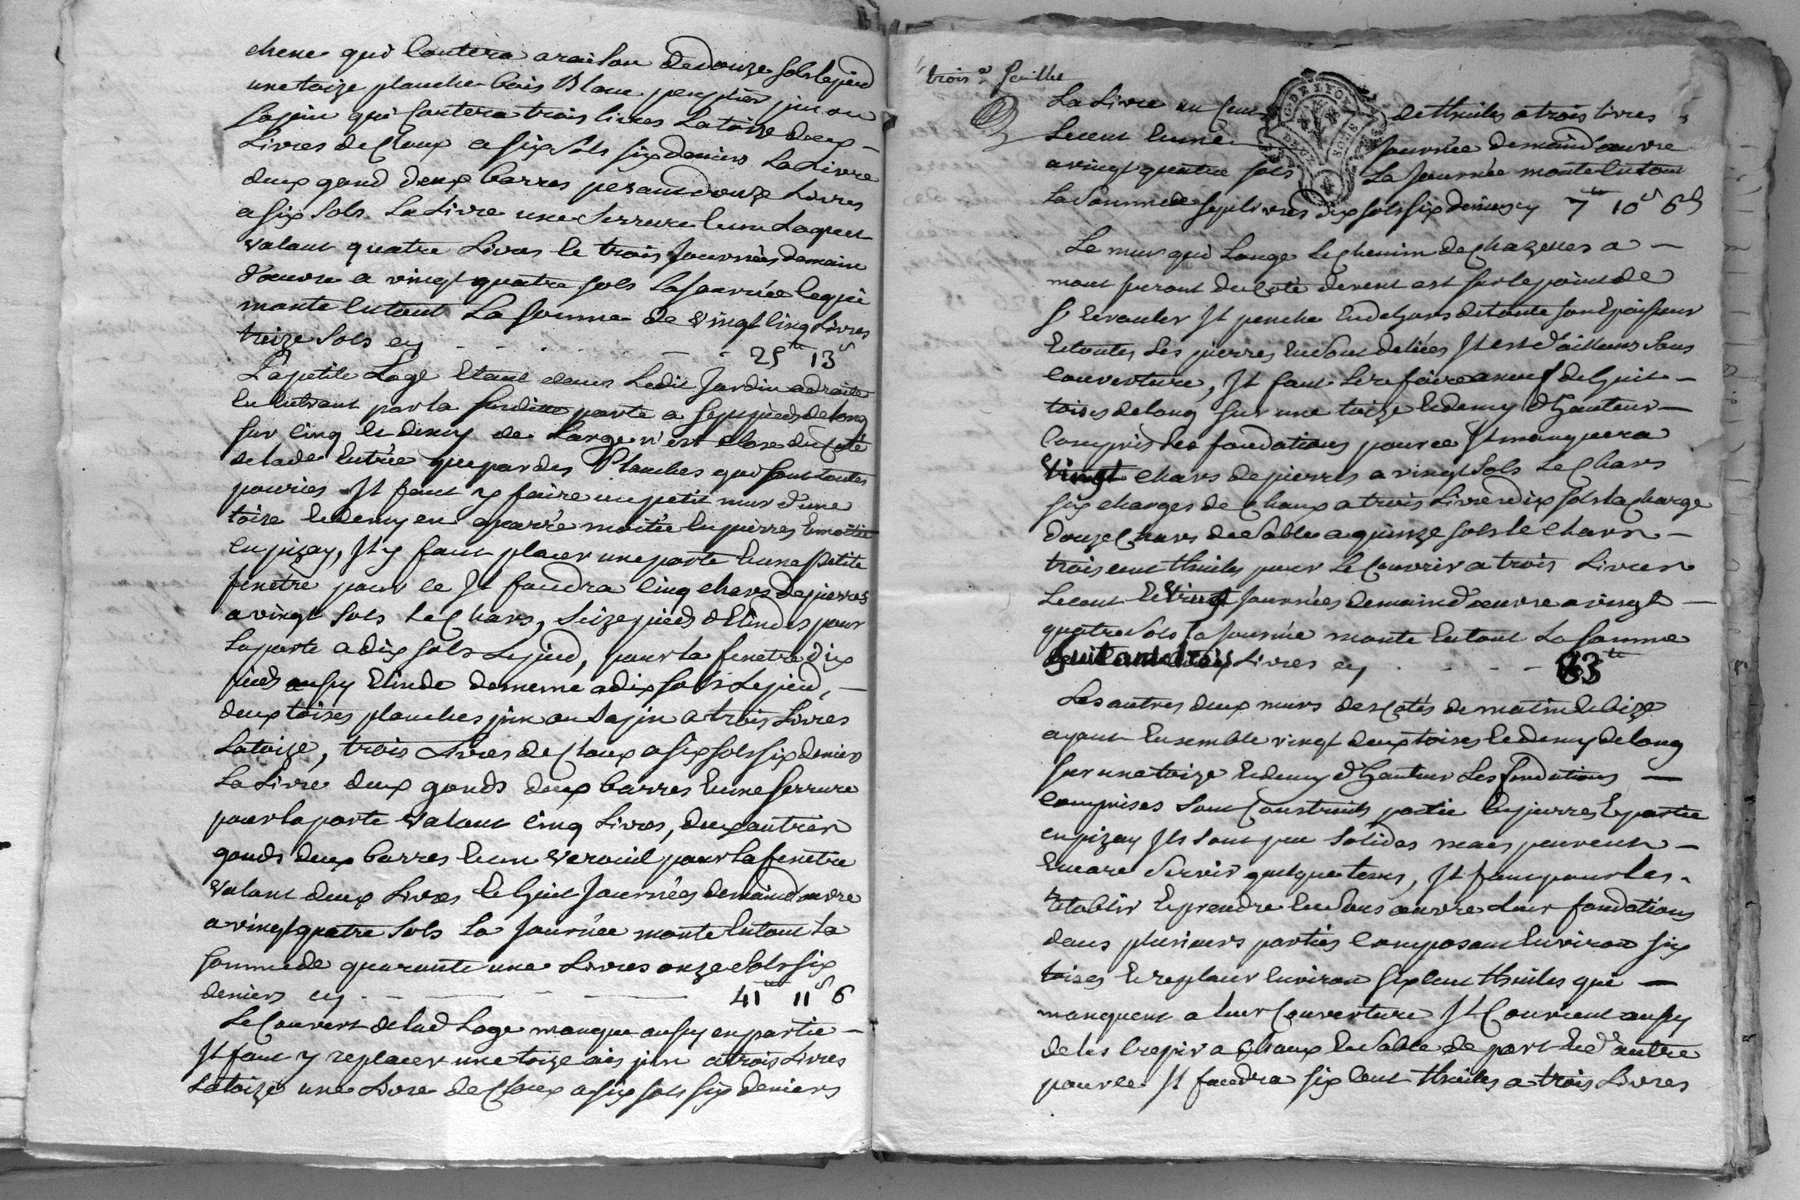 chene qui Coutera a raison de douze sols le pied
une toize planche bois Blanc peuplier pin ou
sapin qui Coutera trois livres La toise deux
Livres de Cloux a six sols six deniers La Livre
deux gond deux barres pezant douze Livres
a six sols La Livre une serrure et un Loquet
valant quatre Livres et trois Journées de main
d'œuvre a vingt quatre sols La Journée le qui
monte en tout La somme de vingt Cinq Livres
treize sols cy 25tt 13s
La petite Loge Etant dans Ledit Jardin a droite
En Entrant par la susditte porte a sept pieds de long
sur Cinq et demy de Large n'est close du Coté
de lade Entrée que par des Planches qui sont toutes
pouries Il faut y faire un petit mur d'une
toise et demy en quarré moitié En pierres Et moitié
En pizay, Il y faut placer une porte Et une petite
fenetre pour ce Il faudra Cinq chars de pierres
a vingt sols Le Chars, seize pieds d'Elindes pour
La porte a dix sols Le pied, pour la fenetre dix
pieds aussy Elinde de meme a dix sols Le pied,
deux toises planches pin ou Sapin a trois Livres
La toize, trois Livres de Cloux a six sols six denier
La Livre deux gonds deux barres Et une serrure
pour la porte valant Cinq Livres, deux autres
gonds deux barres Et un verouil pour la fenetre
valant deux Livres Et huit Journées de main d'œuvre
a vingt quatre sols La Journée monte En tout La
somme de quarante une Livres onze sols six
deniers cy 41tt 11s 6
Le Couvert de lad Loge manque aussy en partie
Il faut y replacer une toize ais pin a trois Livres
La toize une Livre de Cloux a six sols six deniers
trois e feuille
G. DE LYON
DEUX SOLS
La Livre un Cent de thuiles a trois livres
Le cent Et une Journée de main d'œuvre
a vingt quatre sols La Journée monte En tout
La Somme de sept livres dix sols six deniers cy 7tt 10s 6d
Le mur qui Longe Le Chemin de Chazelles a
mont du Coté devent est sur le point de
s'Ecrouler Il penche En dehors de toute son Epaisseur
Et toutes Les pierres En sont deliées Il est d'ailleurs sans
Couverture, Il faut Le refaire a neuf de huit
toises de long sur une toize Et demy d'hauteur
Compris Les fondations pour ce Il manquera
vingt chars de pierres a vingt sols Le Chars
six charges de Chaux a trois Livres dix sols La charge
douze Chars de Sable a quinze sols le Chars
trois cent thuiles pour Le Couvrir a trois Livres
Le cent Et vingt Journées de main d'œuvre a vingt
quatre sols La Journée monte En tout La Somme
Livres cy 83tt
Les autres deux murs des Cotés de matin Et bize
ayant Ensemble vingt deux toises Et demy de long
sur une toize Et demy d'hauteur Les fondations
comprises sont Construits partie En pierres Et partie
en pizay Ils sont peu solides mais peuvent
Encore Servir quelque tems, Il faut pour Les
retablir Reprendre En sous œuvre Leur fondations
dans plusieurs parties Composant Environ six
toises Et replacer Environ six Cent thuiles que
manquent a Leur Couverture Il Convient aussy
de les Crepir a Chaux Et Sable de part Et d'autre
pour ce Il faudra six Cent thuiles a trois Livres